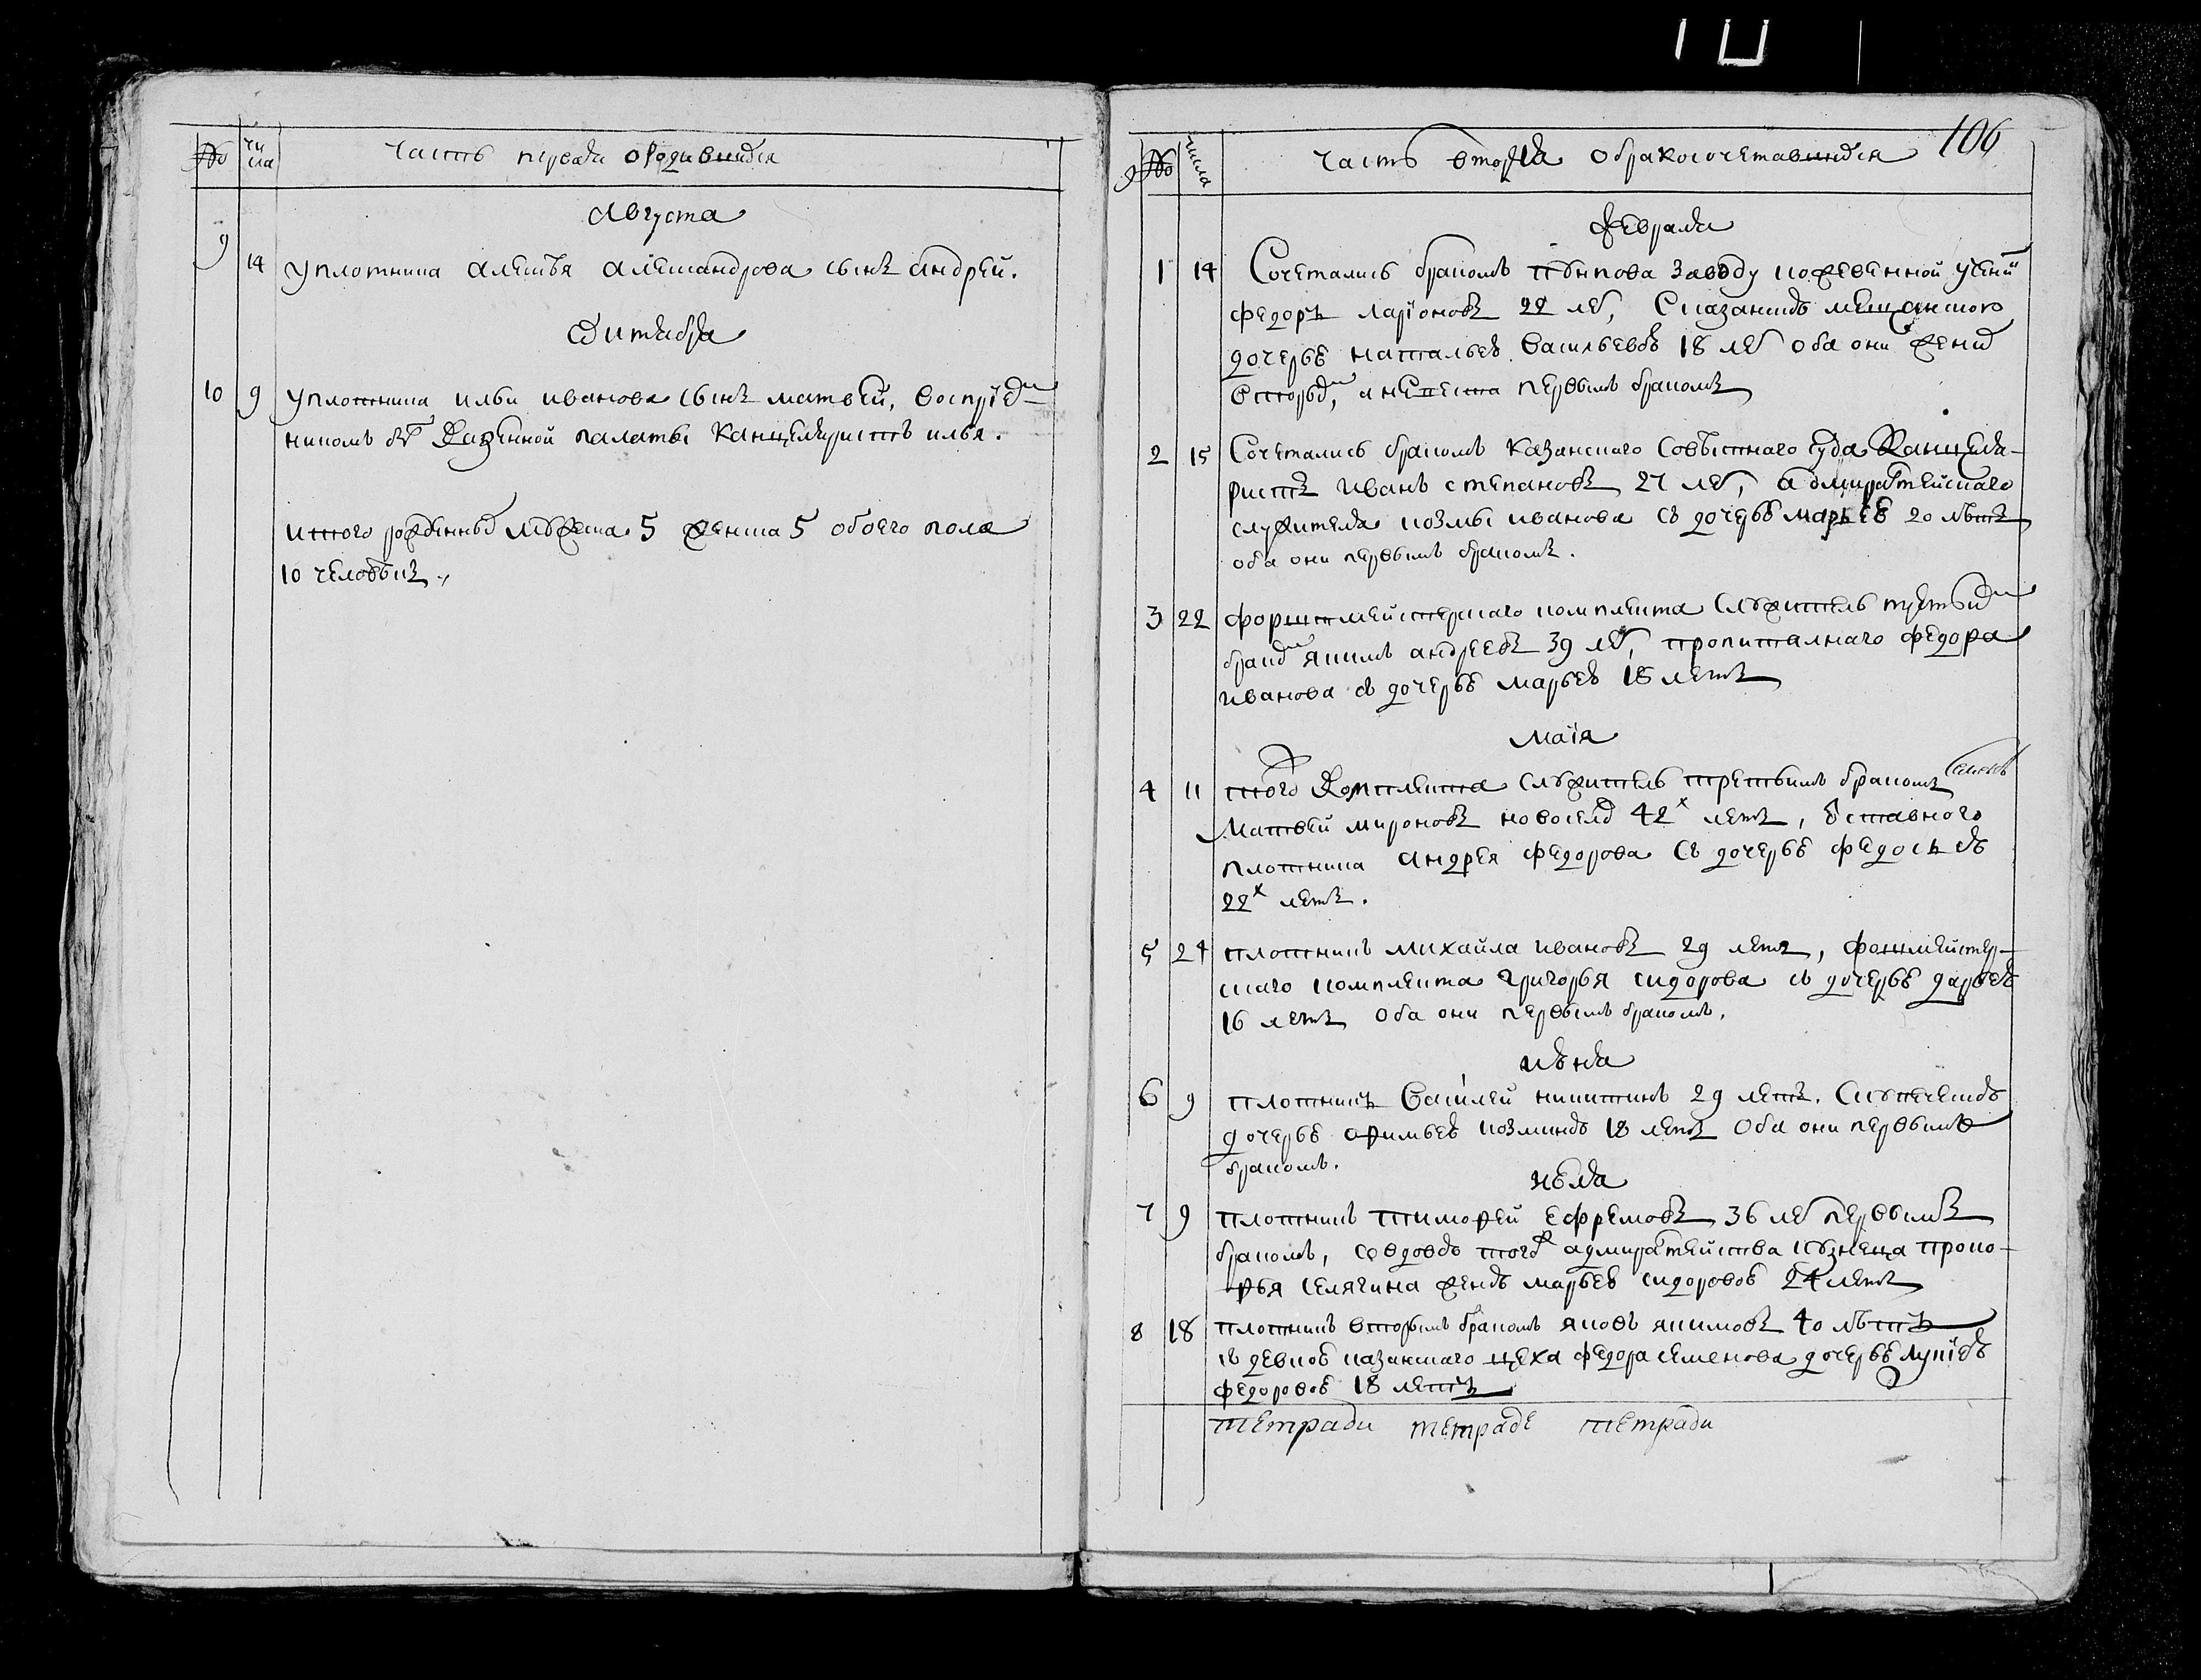 №
чи
сла
часть первая о родившихся
Августа
9 14 у плотника алексѣя александрова сынъ андрей.
Октября
10 9 у плотника ильи иванова сынъ матвей, воспрiем-
никомъ былъ Казенной палаты Канцеляристъ илья.
итого рожденныхъ мужеска 5 женска 5 обоего пола
10 человекъ.
106
№
числа
часть вторая о бракосочетавшихся
февраля
1 14 Сочетались бракомъ заводу кожевенной ученикъ
федоръ ларiоновъ 22 лет, с казанскою мещанскою
дочерью натальею васильевою 18 лет оба они жених
вторымъ, а невеста первымъ бракомъ
2 15 Сочетались бракомъ казанскаго совестнаго суда Канцеля-
ристъ иванъ степановъ 27 лет, адмиралтейскаго
служителя козмы иванова съ дочерью марьею 20 летъ
оба они первымъ бракомъ.
3 22 форштмейстерскаго комплекта служитель третьимъ
бракомъ якимъ андреевъ 39 лет, пропиталнаго федора
иванова съ дочерью марьею 18 летъ
маiя
4 11 того Комплекта служитель третьимъ бракомъ
матвей мироновъ новоселъ 42х летъ, оставного
плотника андрея федорова съ дочерью федосьею
22х летъ.
5 24 плотникъ михайла ивановъ 29 летъ, фоштмейстер-
скаго комплекта григорья сидорова съ дочерью дарьею
16 летъ оба они первымъ бракомъ,
июня
6 9 плотникъ василей никитинъ 29 летъ. с купеческою
дочерью афимьею козминою 18 летъ оба они первымъ
бракомъ.
июля
7 9 плотникъ тимофей ефремовъ 36 лет первымъ
бракомъ, со вдовою тогож адмиралтейства кузнеца проко-
фья селягина женою марьею сидоровою 24 летъ
8 18 плотникъ вторымъ бракомъ яковъ якимовъ 40 летъ
съ девкою казанскаго цеха федора семенова дочерью лукiею
федоровою 18 летъ
тетради тетраде тетради